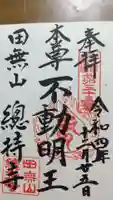 奉拝
令和四年十一月廿三日
本尊 不動明王
田無山 總持寺
田無山